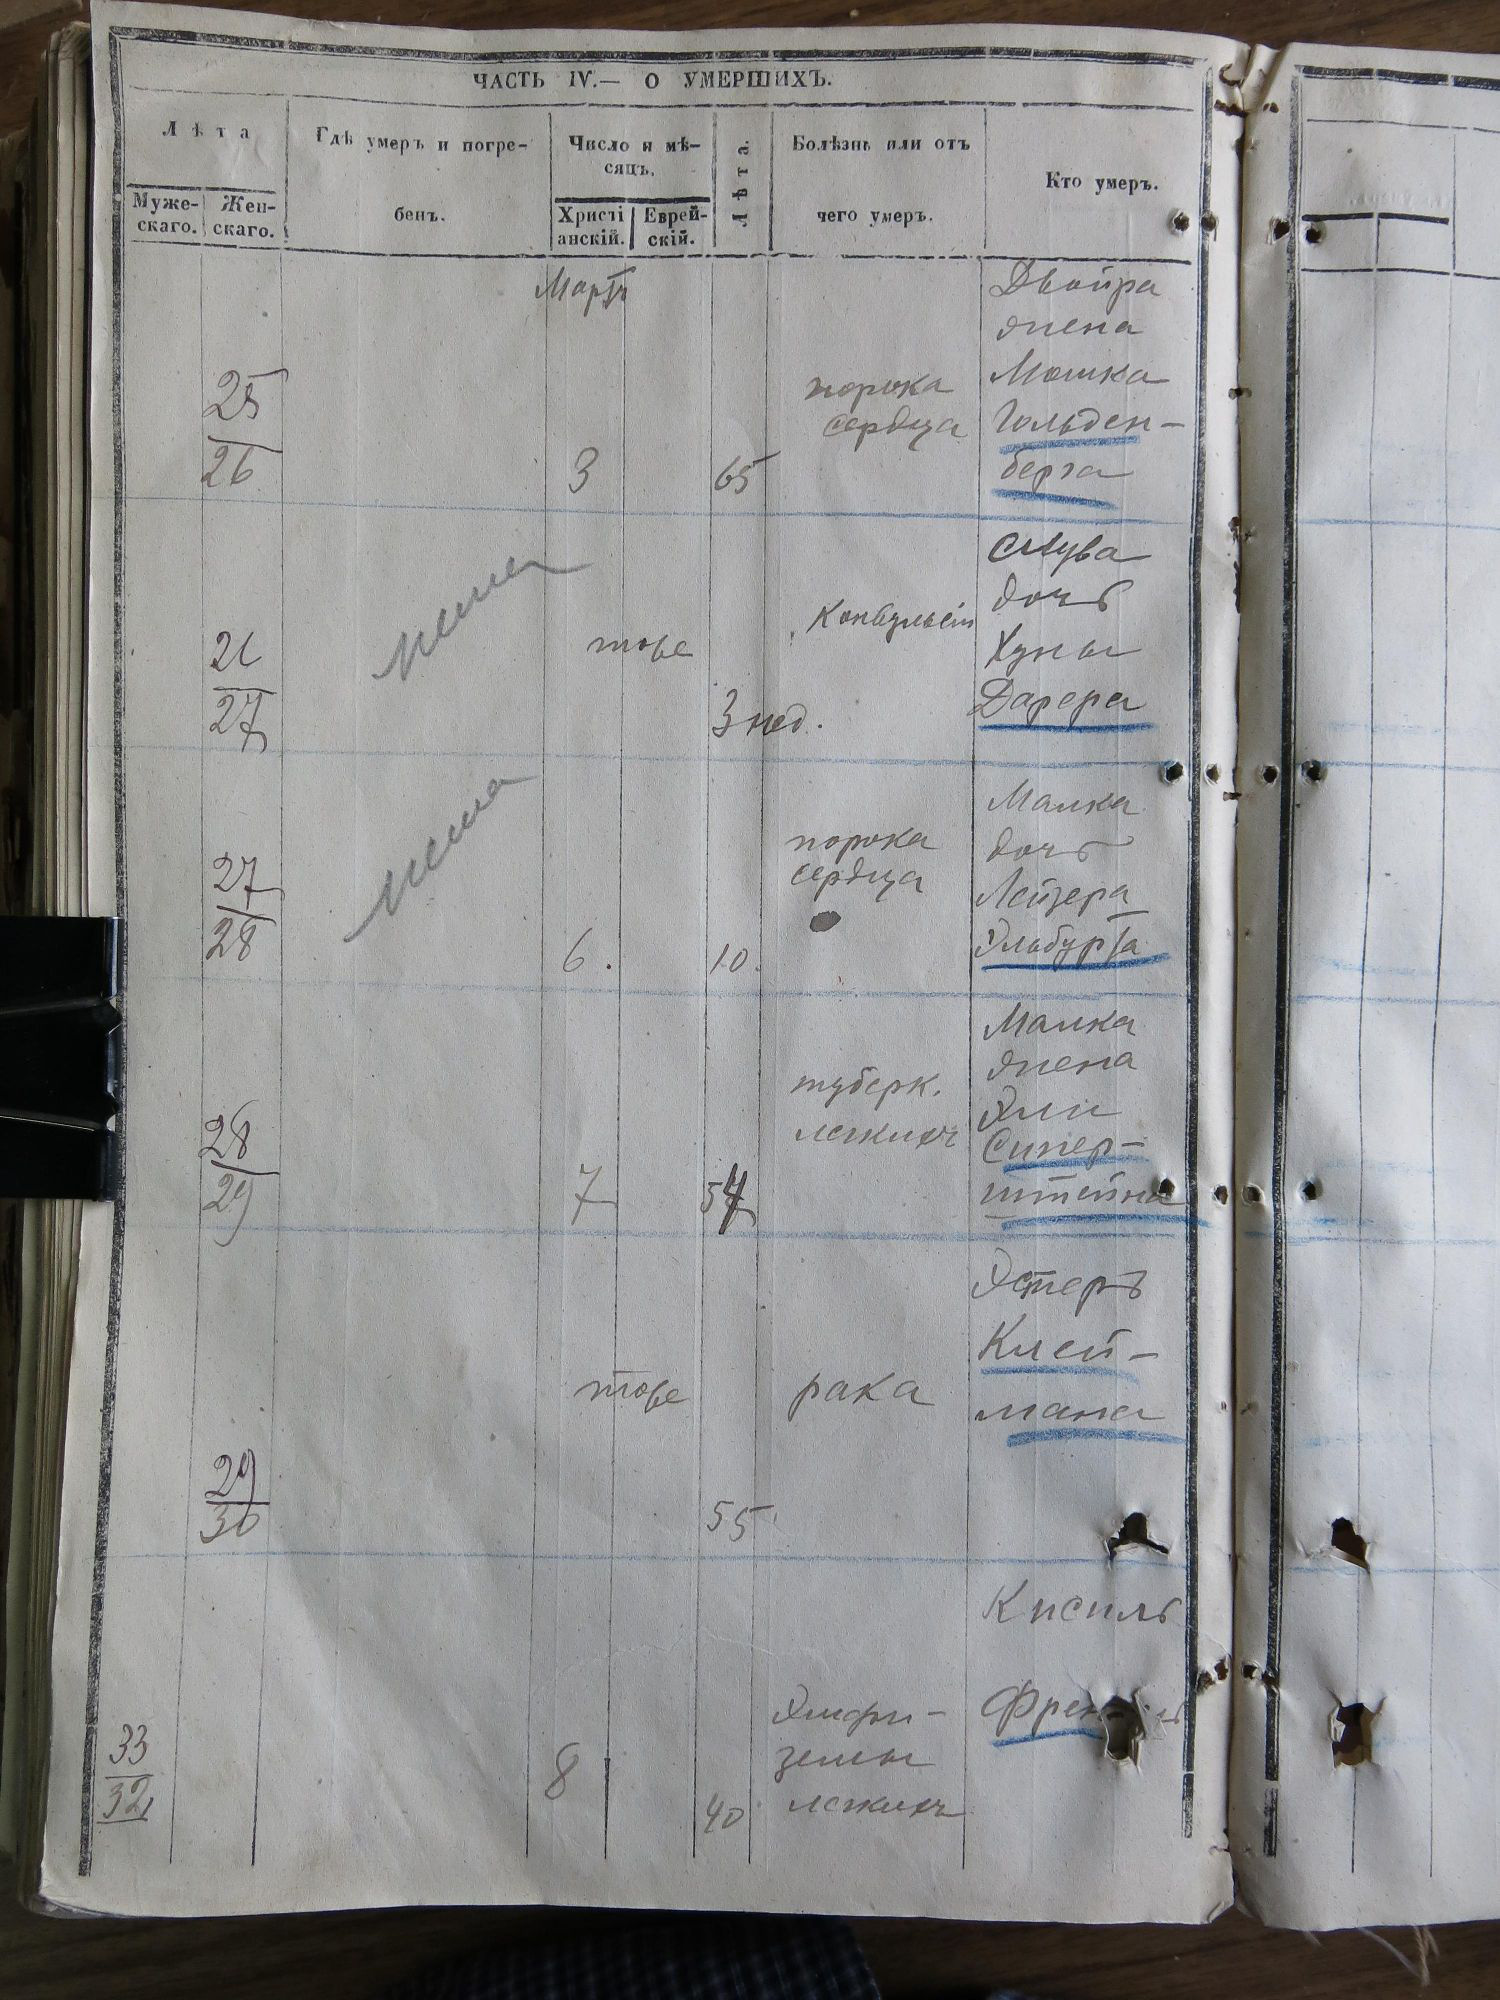 ЧАСТЬ IV.— О УМЕРШИХЪ.
Лѣта
Муже-
скаго.
Жен-
скаго.
Гдѣ умеръ и погре-
бенъ.
Число и мѣ-
сяцъ.
Христі
анскій.
Еврей-
скій.
Лѣта.
Болѣзнь или отъ
чего умеръ.
Кто умеръ.
Мартъ
25
26
3
65
порока
сердца
Двойра
жена
Мошка
Гольден-
берга
27
тоже
3 нед.
Конвульсіи
дочь
Хуны
28
27
6.
10.
порока
сердца
Малка
дочь
Лейзера
28
29
7
туберк.
легкихъ
Малка
жена
Эли
Сипер-
штейна
29
30
тоже
55
рака
Эстеръ
Клей-
мана
33
32
8
40
Эмфи-
земы
легкихъ
Кисиль